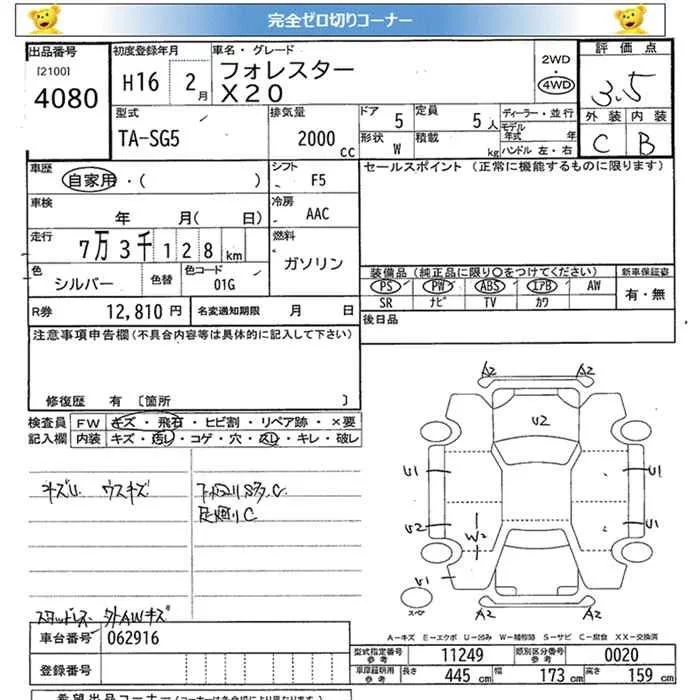 完全ゼロ切りコーナー
出品番号 [2100] 4080
初度登録年月 H16 2月
車名・グレード フォレスター X20
2WD 4WD
評価点 3.5
外装 C 内装 B
型式 TA-SG5
排気量 2000 cc
ドア 5
形状 W
定員 5人
積載 kg
ディーラー・並行
モデル年式 年
ハンドル 左・右
車歴 自家用・( )
シフト F5
セールスポイント (正常に機能するものに限ります)
車検 年 月( 日)
冷房 AAC
走行 7万3千128km
燃料 ガソリン
色 シルバー 色替 色コード 01G
装備品(純正品に限り○をつけてください)
PS PW ABS エアB AW
SR ナビ TV カワ
新車保証書 有・無
R券 12,810円 名変通知期限 月 日
後日品
注意事項申告欄(不具合内容等は具体的に記入して下さい)
修復歴 有 [箇所 ]
検査員記入欄
FW キズ・飛石・ヒビ割・リペア跡・×要
内装 キズ・汚レ・コゲ・穴・スレ・キレ・破レ
キズU ウスキズ
下廻りSタ, C
足廻りC
スタッドレス 外AWキズ
A2 A2
U2
U1 U1
U2 U1
W2
U1
スペア
A2 A2
A−キズ E−エクボ U−凹み W−補修跡 S−サビ C−腐食 XX−交換済
車台番号 062916
登録番号
型式指定番号 参考 11249
類別区分番号 参考 0020
車庫証明用 参考 長さ 445 cm 幅 173 cm 高さ 159 cm
希望出品コーナー